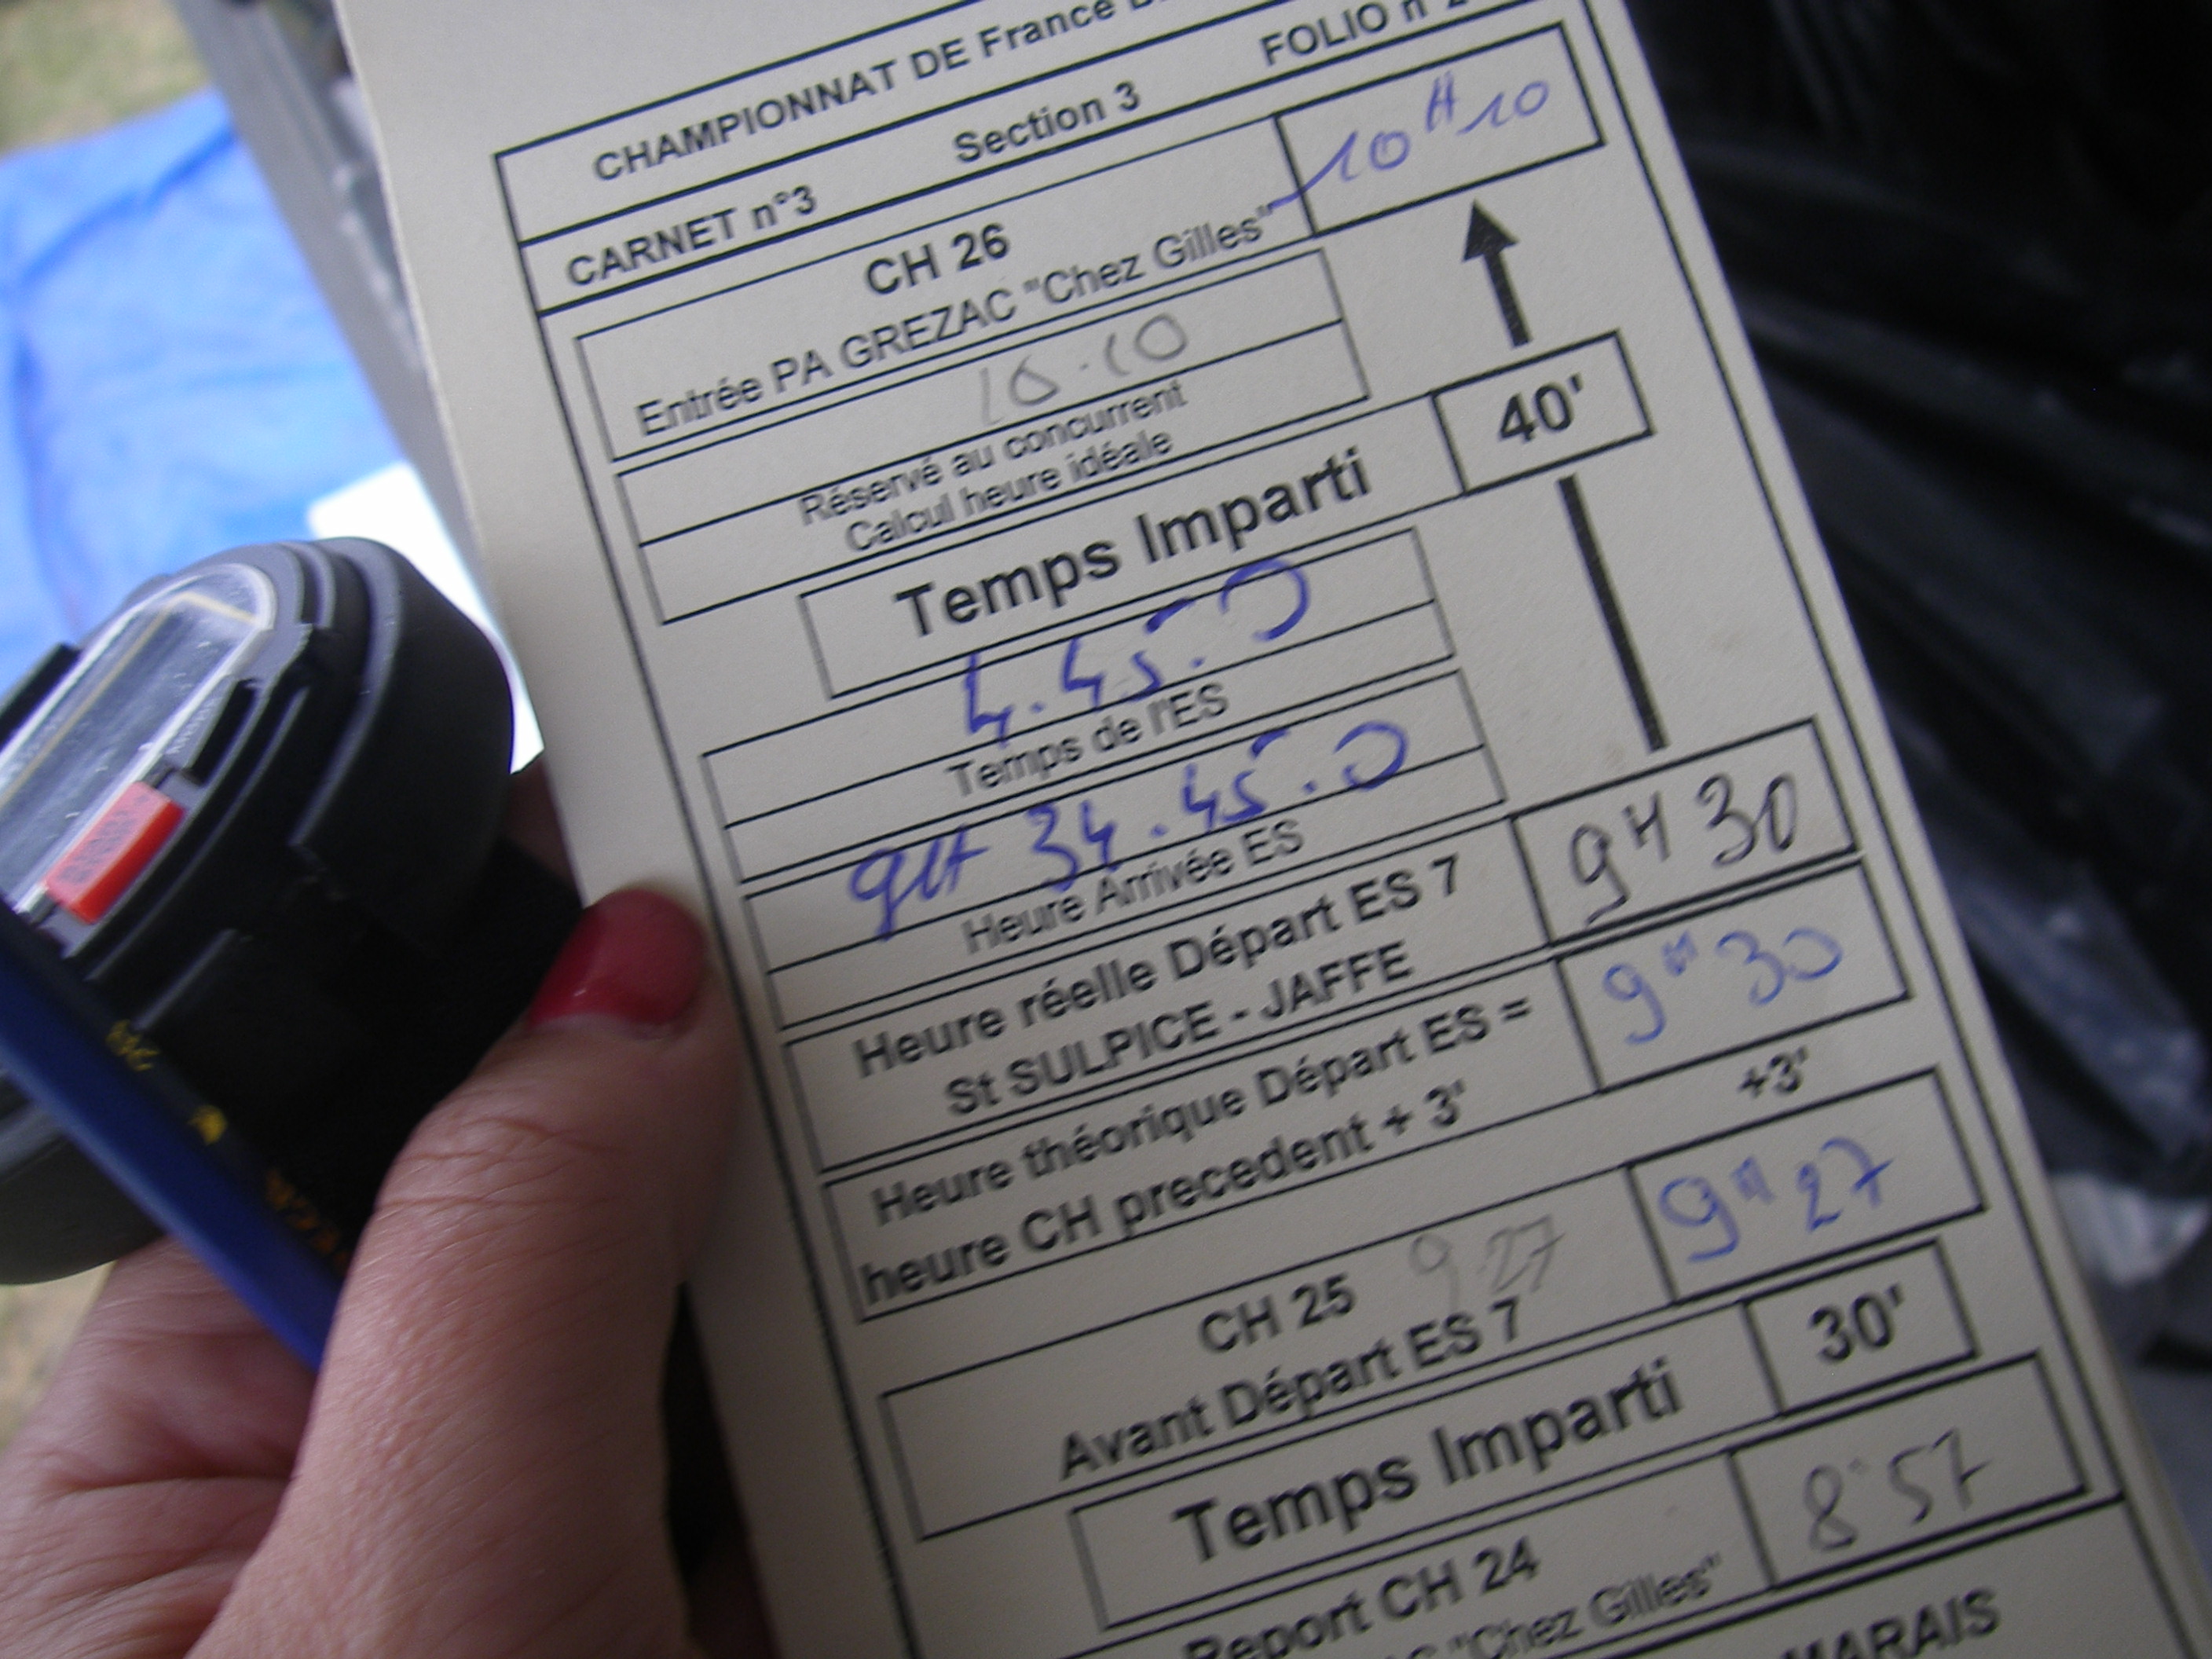 CHAMPIONNAT DE France
CARNET n°3 Section 3 FOLIO n°2
CH 26
Entrée PA GREZAC "Chez Gilles" 10H10
10.10
Réservé au concurrent
Calcul heure idéale
Temps Imparti 40'
4.45.0
Temps de l'ES
9H 34.45.0
Heure Arrivée ES
Heure réelle Départ ES 7 9H30
St SULPICE - JAFFE
Heure théorique Départ ES = 9H30
heure CH precedent + 3' +3'
CH 25 9 27 9H27
Avant Départ ES 7
Temps Imparti 30'
Report CH 24 8 57
"Chez Gilles"
MARAIS